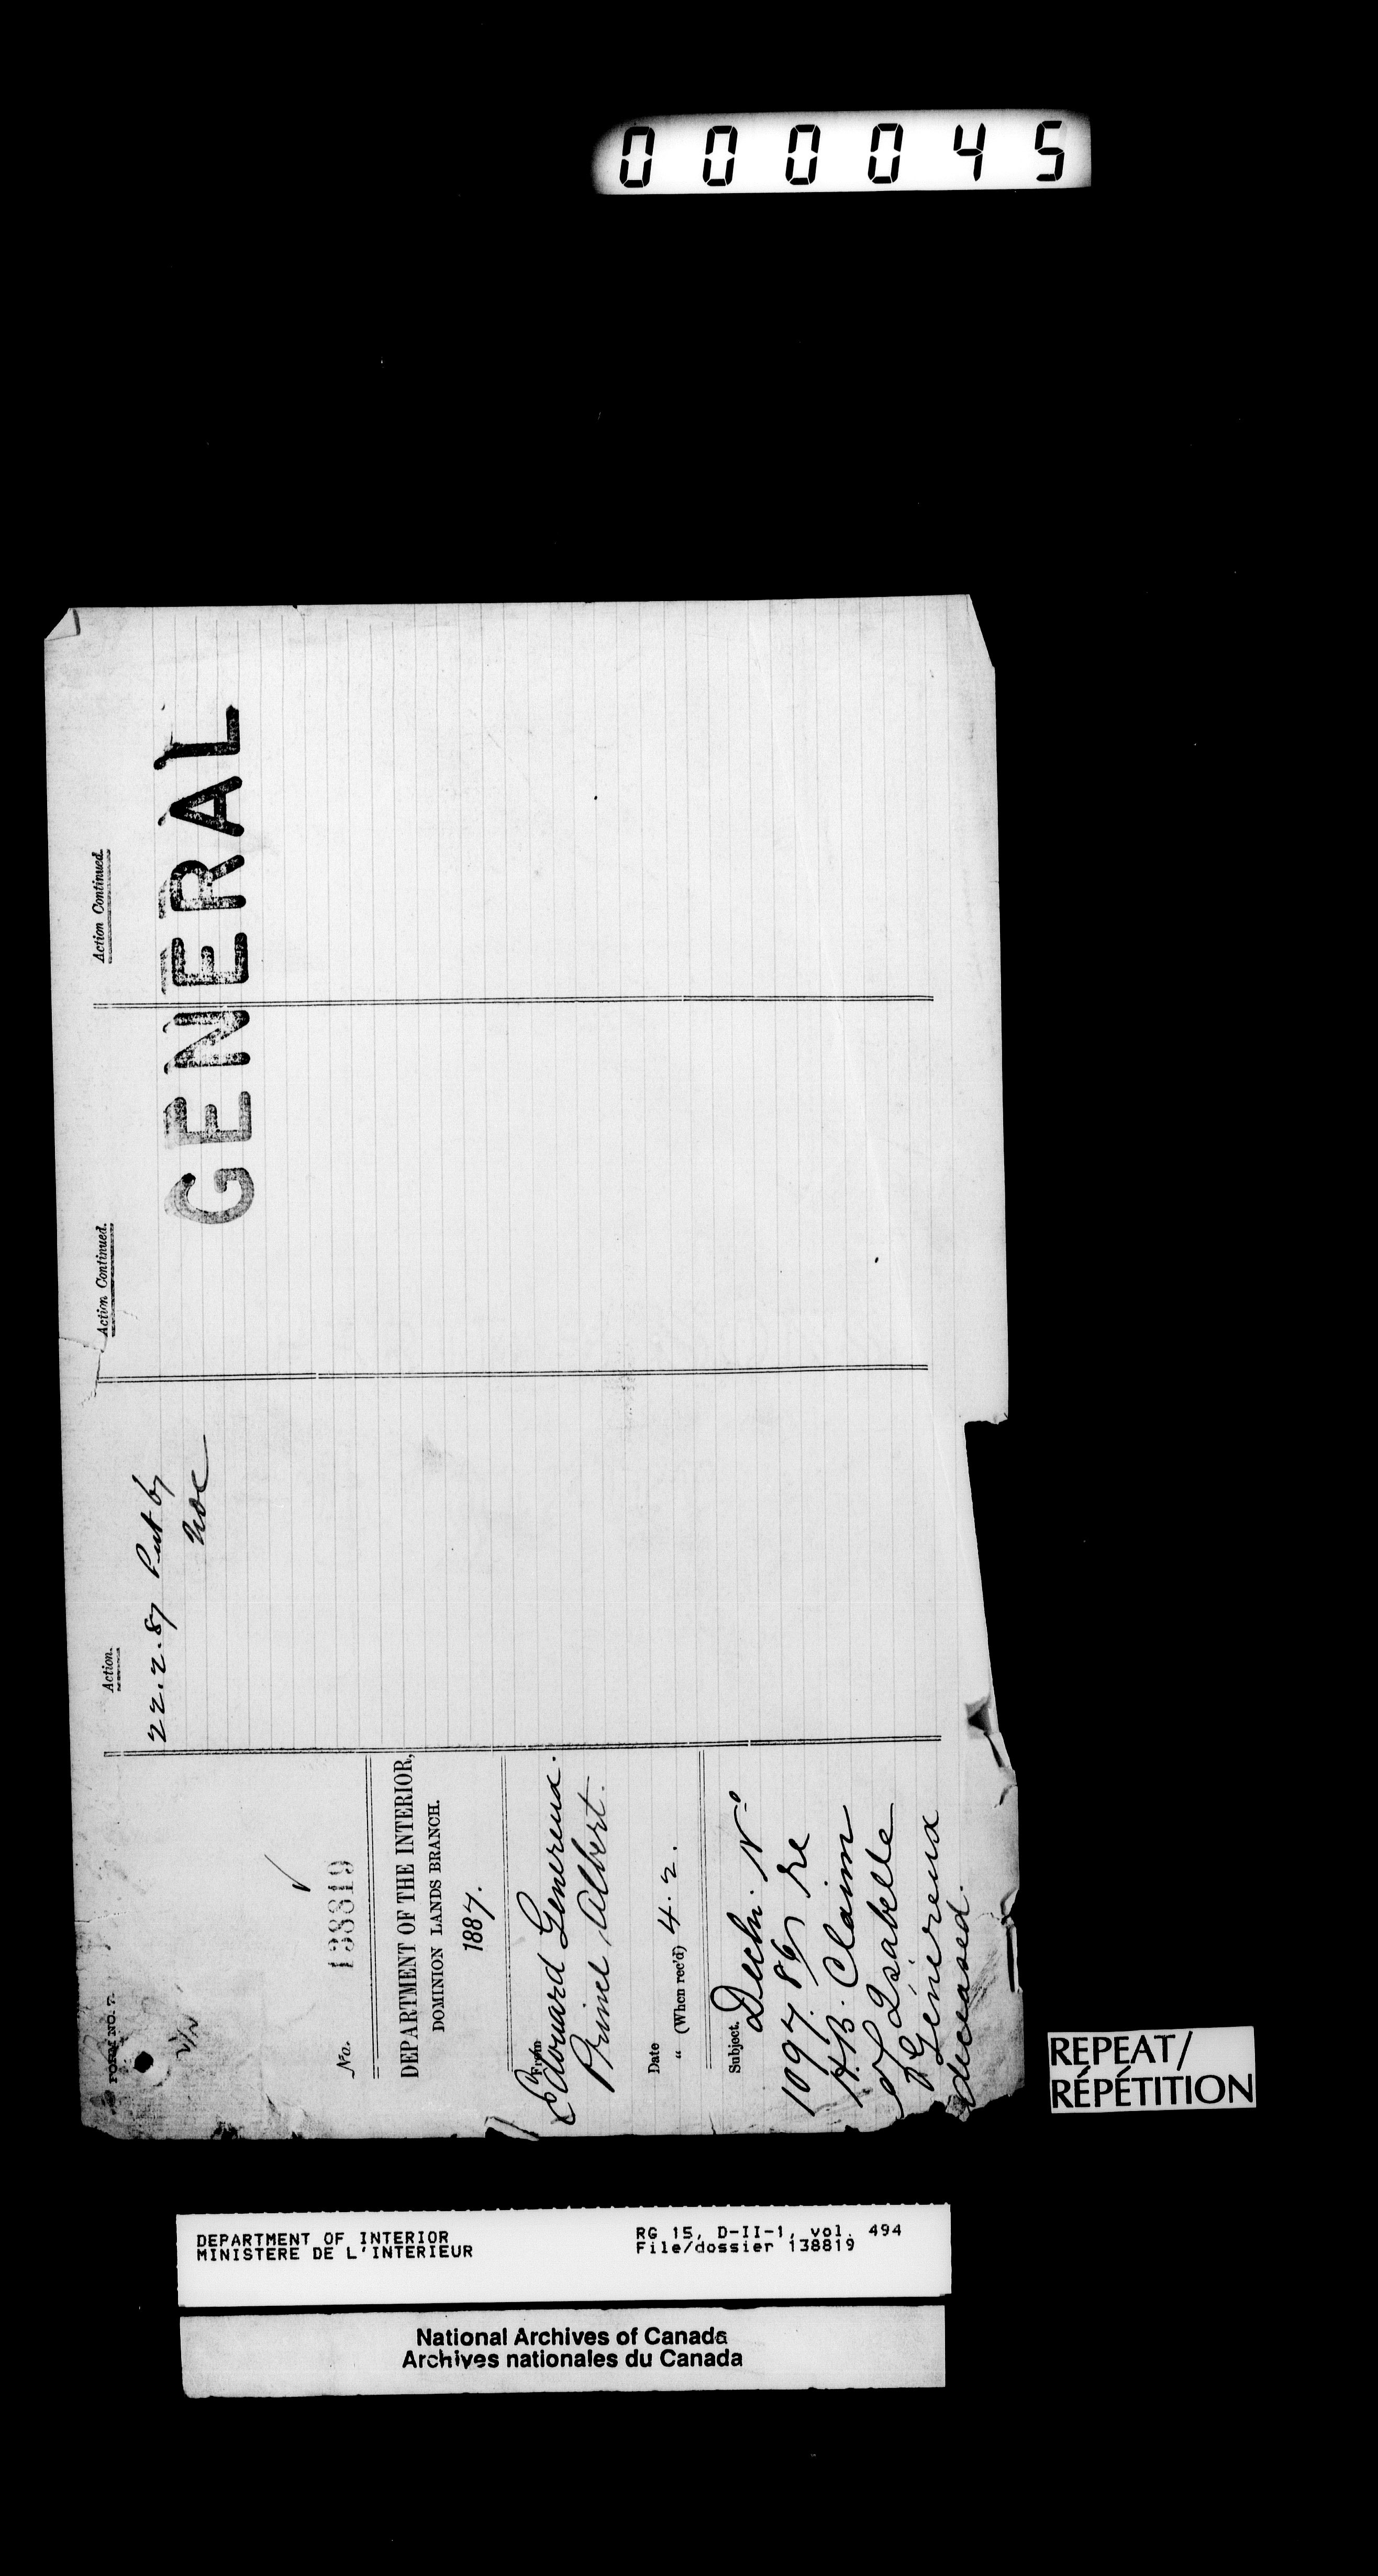 000045
FORM NO. 7.
No. 138819
DEPARTMENT OF THE INTERIOR,
DOMINION LANDS BRANCH.
1887.
From
Edouard Genereux.
Prince Albert.
Date
" (When rec'd) 4.2.
Subject.
Decln. No
1097.86 re
H.B. Claim
of Isabelle
Généreux
deceased.
Action.
22.2.87 Put by
Action Continued.
Action Continued.
GENERAL
REPEAT/
RÉPÉTITION
DEPARTMENT OF INTERIOR
MINISTERE DE L'INTERIEUR
RG 15, D-II-1, vol. 494
File/dossier 138819
National Archives of Canada
Archives nationales du Canada